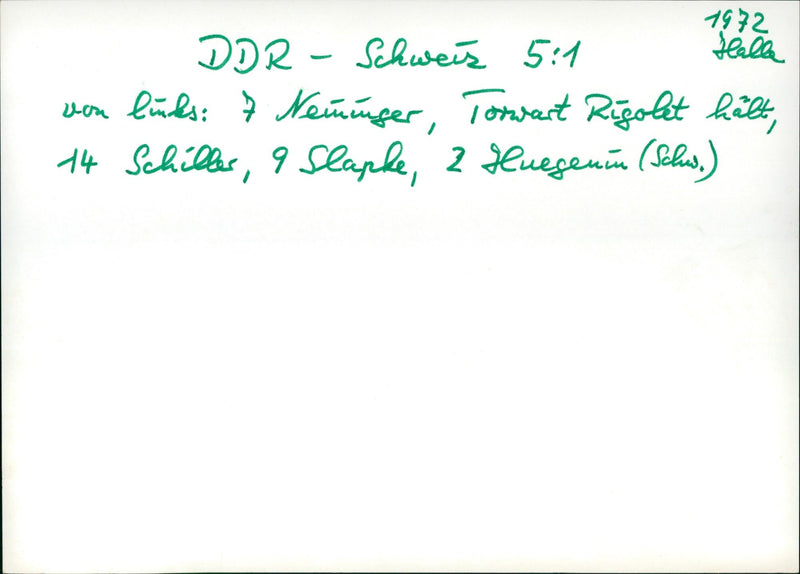 1972
Halle
DDR - Schweiz 5:1
von links: 7 Neininger, Torwart Rigolet hält,
14 Schiller, 9 Slapke, 2 Huegenin (Schw.)